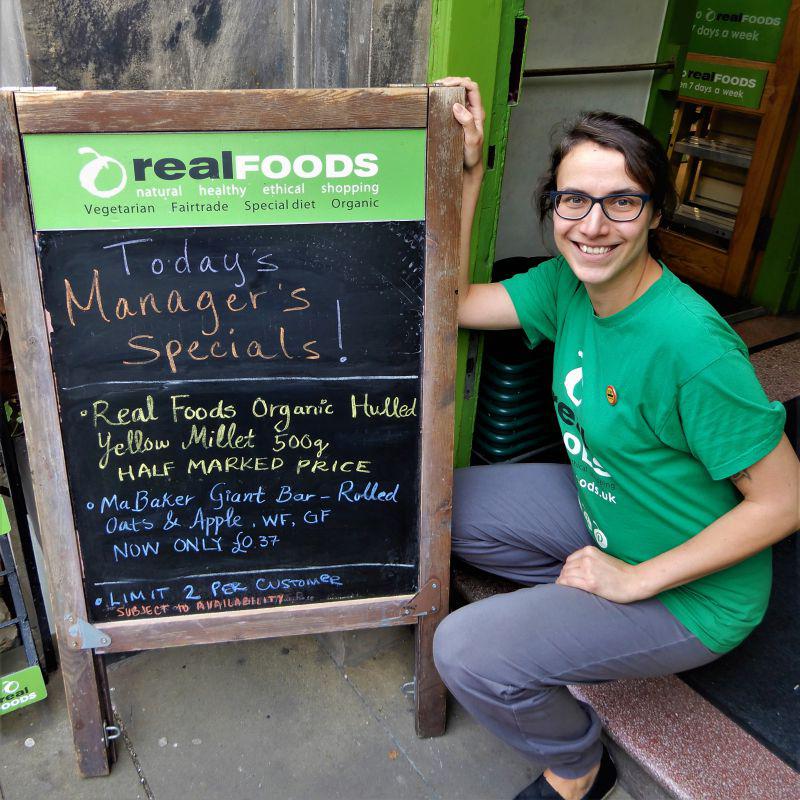 realFOODS
natural healthy ethical shopping
Vegetarian Fairtrade Special diet Organic
Today's
Manager's
Specials!
• Real Foods Organic Hulled
Yellow Millet 500g
HALF MARKED PRICE
• MaBaker Giant Bar - Rolled
Oats & Apple, WF, GF
NOW ONLY £0.37
• LIMIT 2 PER CUSTOMER
SUBJECT TO AVAILABILITY
realFOODS
7 days a week
realFOODS
7 days a week
oods.uk
real
FOODS